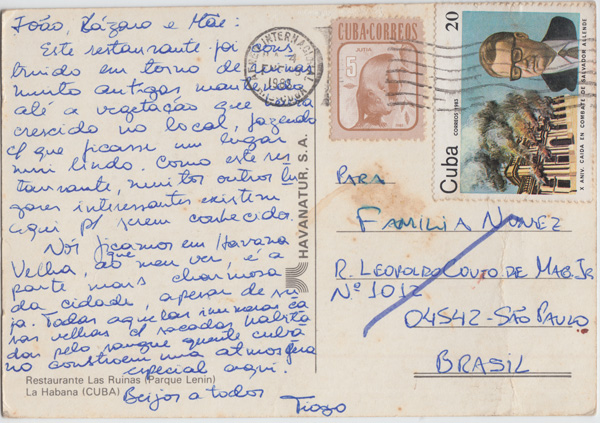 João, Lázaro e Mãe:
Este restaurante foi cons
truido em torno de ruinas
muito antigas mantendo
até a vegetação que havia
crescido no local, fazendo
c/ que ficasse um lugar
mui lindo. Como este res
taurante, muitos outros lu
gares interessantes existem
aqui p/ serem conhecido.
Nós ficamos em Havana
Velha, que ao meu ver, é a
parte mais charmosa
da cidade, apesar de su
ja. Todas aquelas imensas ca
sas velhas c/ sacadas habita
das pelo sangue quente cuba
no constroem uma atmosfera
especial aqui.
Beijos a todos
Tiago
Restaurante Las Ruinas (Parque Lenin)
La Habana (CUBA)
HAVANATUR, S.A.
CUBA·CORREOS
JUTIA
5
20
Cuba
CORREOS 1983
X ANIV. CAIDA EN COMBATE DE SALVADOR ALLENDE
PARA
FAMILIA NUNEZ
R. LEOPOLDO COUTO DE MAG. JR
Nº 1012
04542-SÃO PAULO
BRASIL